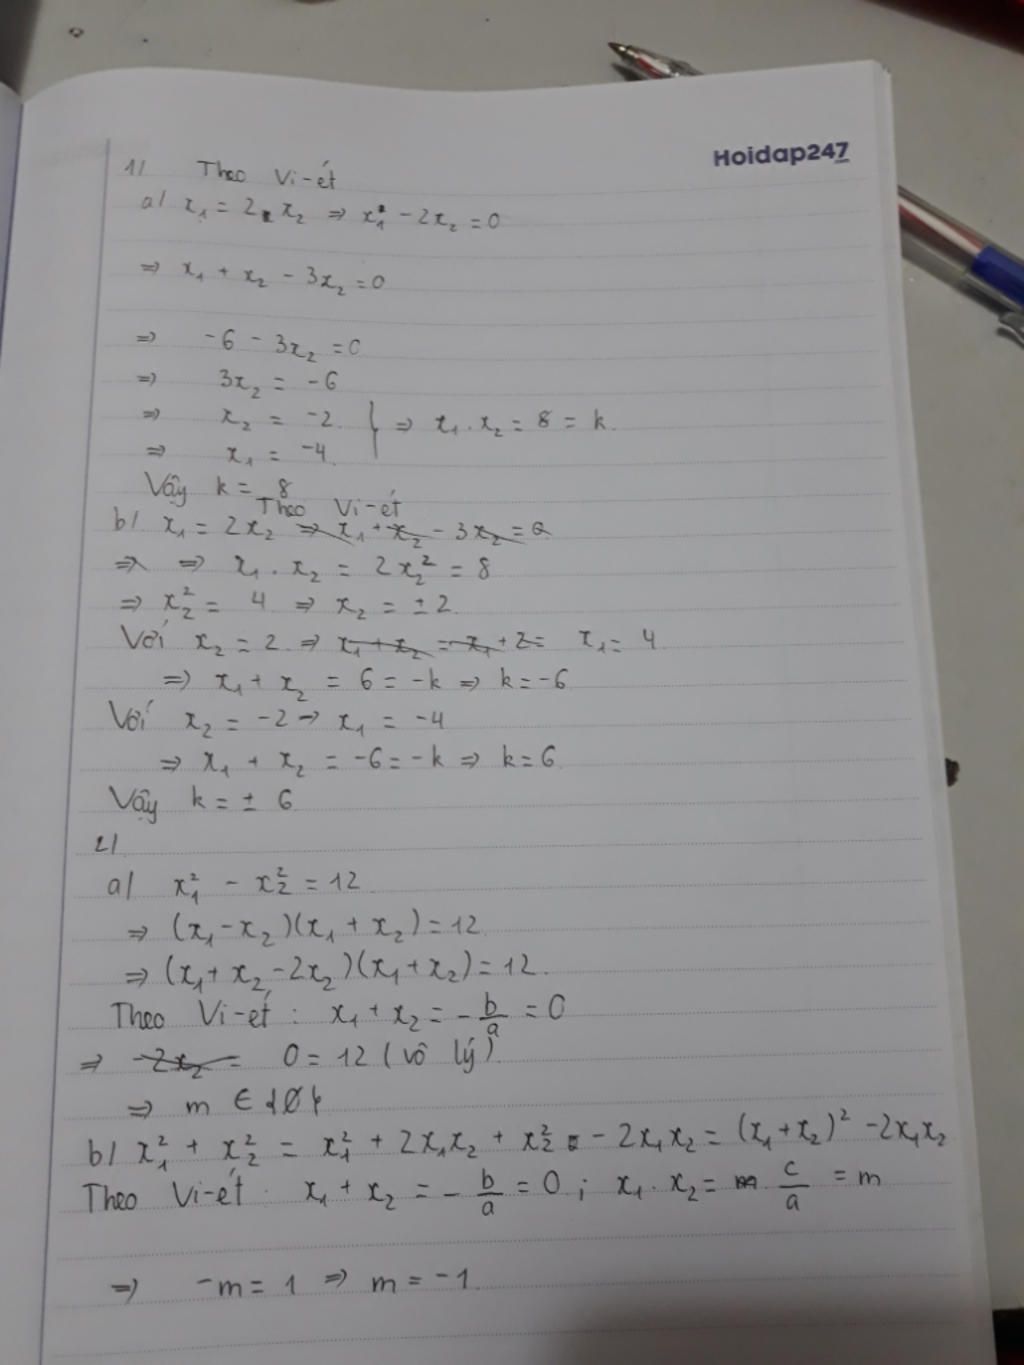 Hoidap247
1/ Theo Vi-ét
a/ x₁ = 2 x₂ ⇒ x₁ - 2x₂ = 0
⇒ x₁ + x₂ - 3x₂ = 0
⇒ -6 - 3x₂ = 0
⇒ 3x₂ = -6
⇒ x₂ = -2 } ⇒ x₁ . x₂ = 8 = k.
⇒ x₁ = -4
Vậy k = 8
Theo Vi-ét
b/ x₁ = 2x₂ ⇒ x₁ + x₂ - 3x₂ = 0
⇒ ⇒ x₁ . x₂ = 2x₂² = 8
⇒ x₂² = 4 ⇒ x₂ = ± 2
Với x₂ = 2 ⇒ x₁ + x₂ = x₁ + 2 = x₁ = 4
⇒ x₁ + x₂ = 6 = -k ⇒ k = -6
Với x₂ = -2 ⇒ x₁ = -4
⇒ x₁ + x₂ = -6 = -k ⇒ k = 6
Vậy k = ± 6
2/
a/ x₁² - x₂² = 12
⇒ (x₁ - x₂)(x₁ + x₂) = 12
⇒ (x₁ + x₂ - 2x₂)(x₁ + x₂) = 12.
Theo Vi-ét : x₁ + x₂ = - b/a = 0
⇒ -2x₂ = 0 = 12 (vô lý)
⇒ m ∈ {Ø}
b/ x₁² + x₂² = x₁² + 2x₁x₂ + x₂² - 2x₁x₂ = (x₁ + x₂)² - 2x₁x₂
Theo Vi-ét : x₁ + x₂ = - b/a = 0 ; x₁ . x₂ = m c/a = m
⇒ -m = 1 ⇒ m = -1